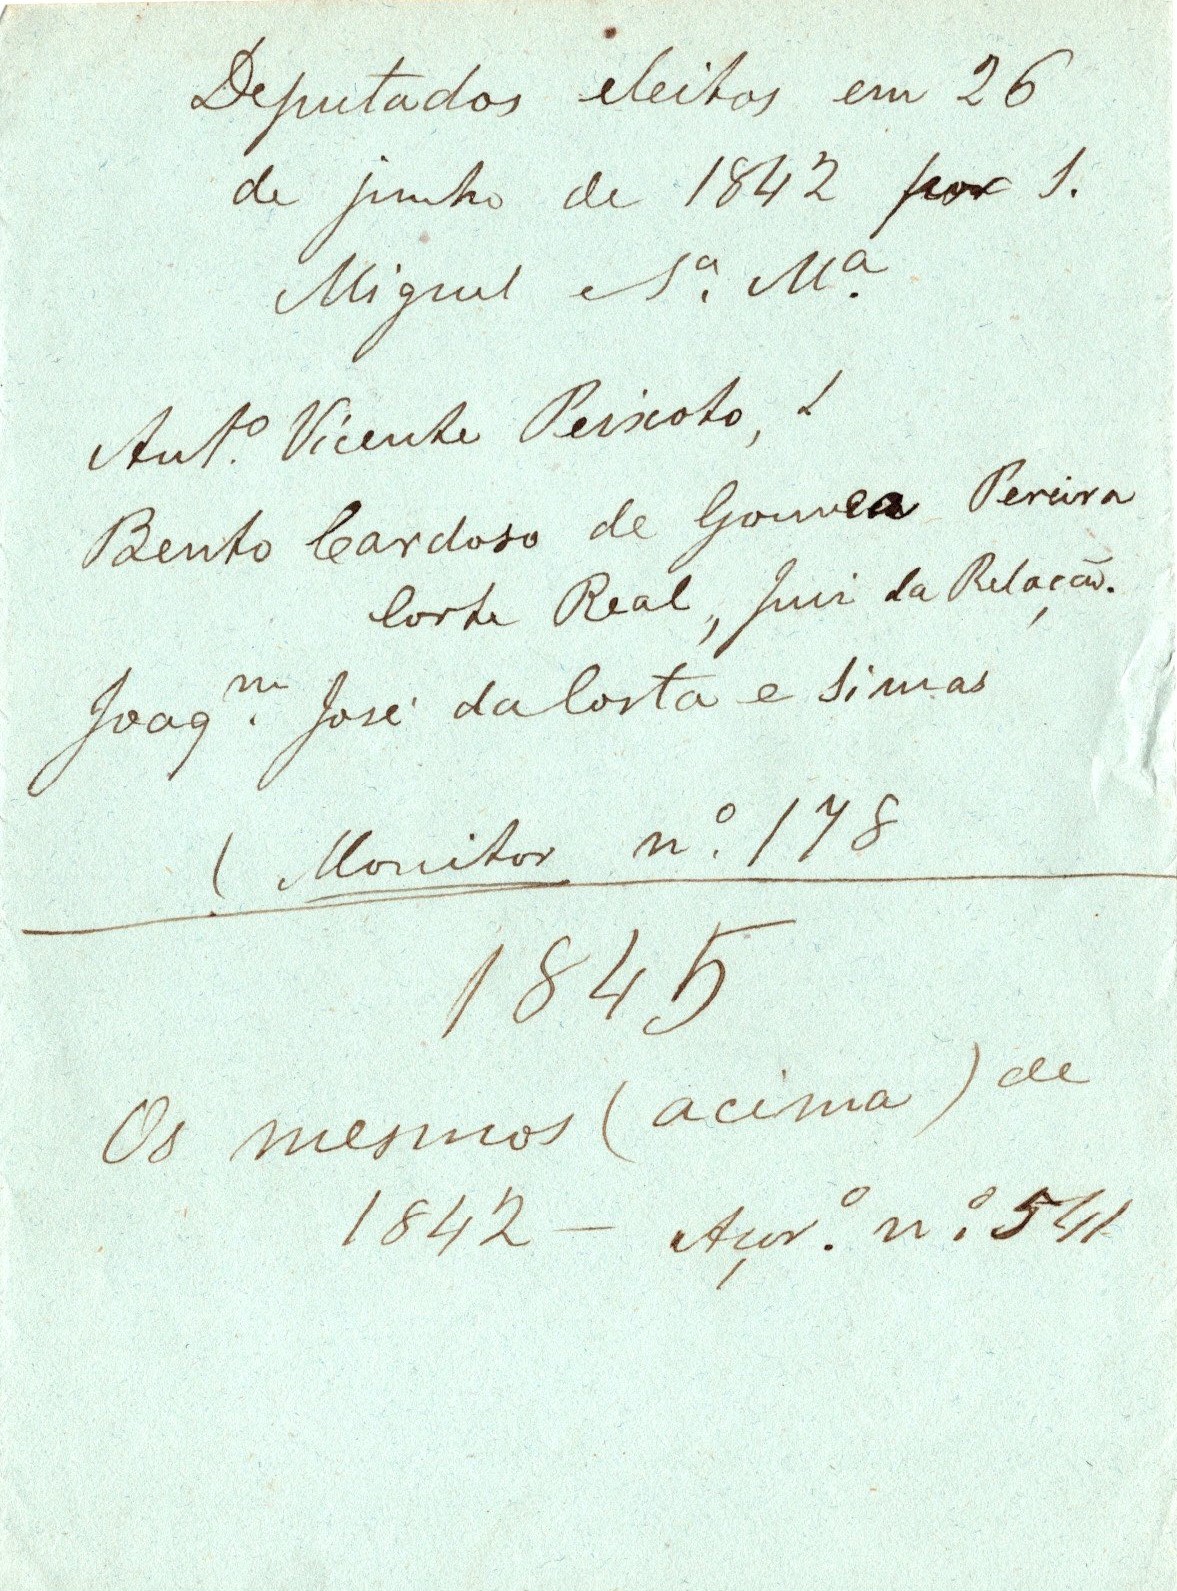 Deputados eleitos em 26
de junho de 1842 por S.
Miguel e Sᵃ. Mᵃ.
Antº. Vicente Peixoto,
Bento Cardoso de Gouvea Pereira
Corte Real, Juiz da Relação.
Joaqᵐ. José da Costa e Simas
(Monitor nº. 178
1845
Os mesmos (acima) de
1842 — Açorº. nº. 541